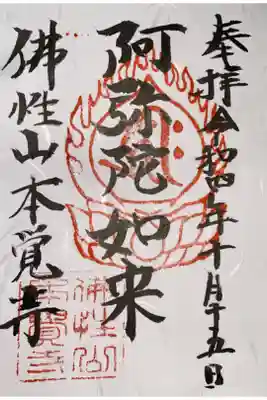 奉拝 令和四年十月十五日
阿弥陀如来
佛性山本覚寺
佛性山
本覺寺